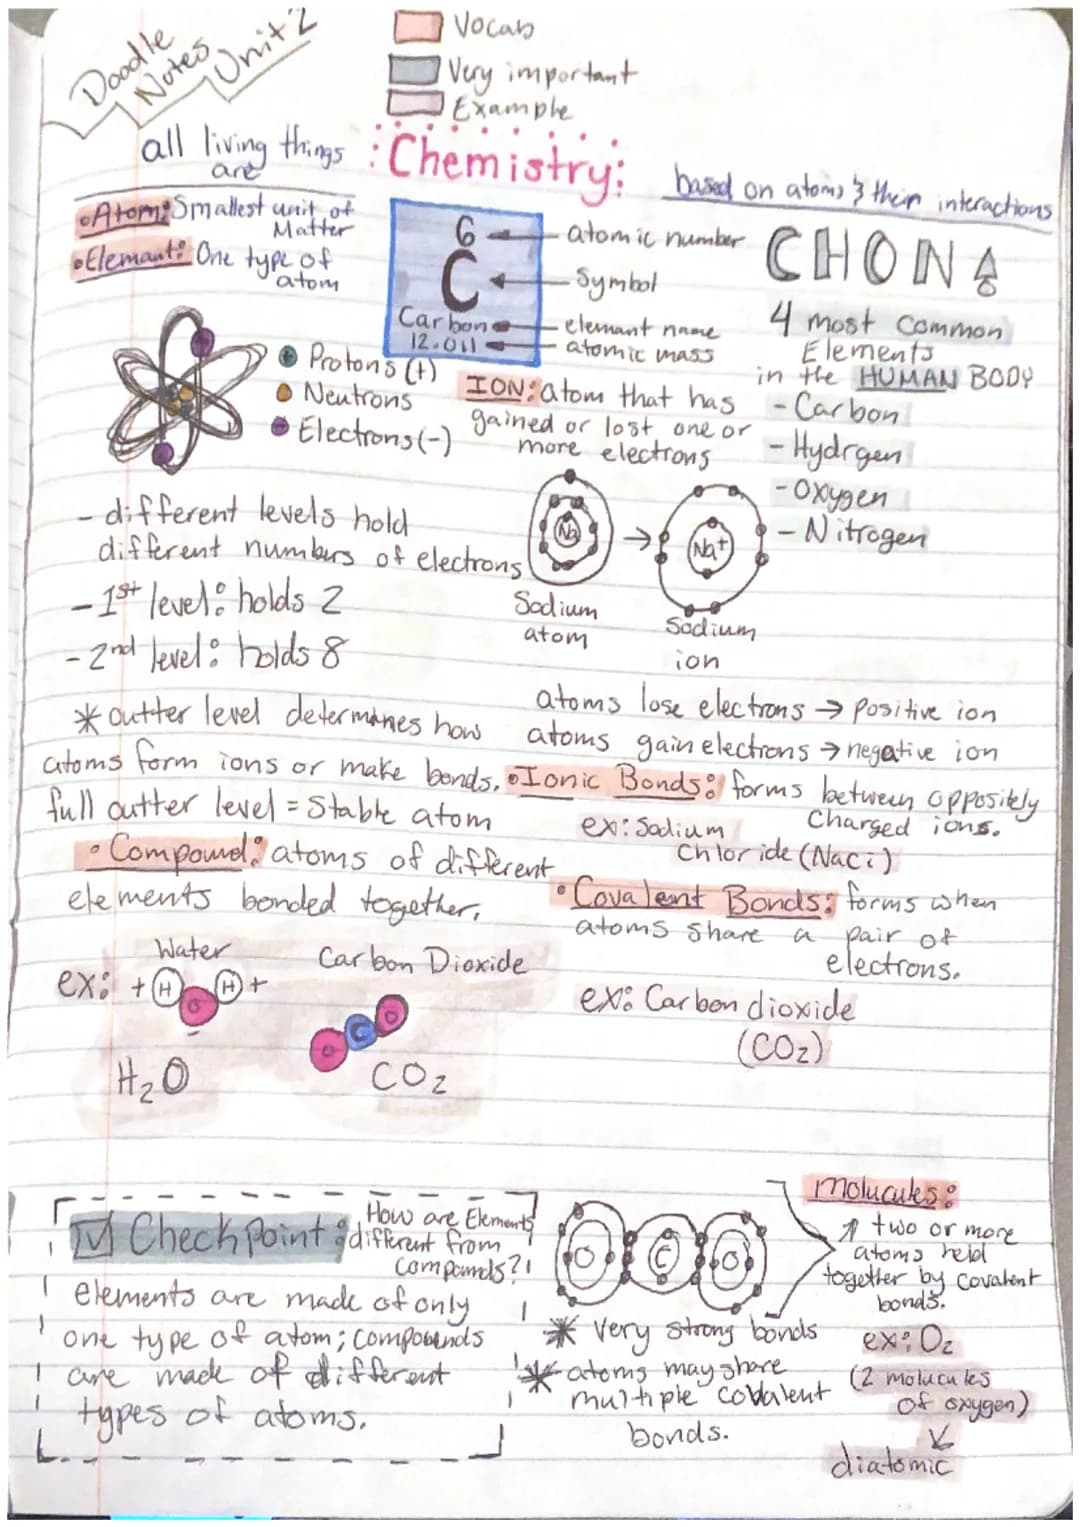 Doodle
Notes
Unit 2
Vocab
Very important
Example
all living things
are
Chemistry:
based on atoms & their interactions
•Atom: Smallest unit of
Matter
•Elemant: One type of
atom
6
C
Carbon
12.011
atomic number
Symbol
elemant name
atomic mass
CHON
4 most common
Elements
in the HUMAN BODY
- Carbon
- Hydrgen
- Oxygen
- Nitrogen
Protons (+)
Neutrons
Electrons (-)
ION: atom that has
gained or lost one or
more electrons
Na
Na+
Sodium
atom
Sodium
ion
- different levels hold
different numbers of electrons
- 1st level: holds 2
- 2nd level: holds 8
* outter level determines how
atoms form ions or make bonds.
full outter level = Stable atom
atoms lose electrons → positive ion
atoms gain electrons → negative ion
•Ionic Bonds: forms between oppositely
Charged ions.
ex: Sodium
Chloride (Naci)
• Compound: atoms of different
elements bonded together.
• Covalent Bonds: forms when
atoms share a pair of
electrons.
ex: Carbon dioxide
(CO2)
Water
Carbon Dioxide
ex: + H H +
O
-
O C O
H2O
CO2
Checkpoint: How are Elements
different from
compounds?
elements are made of only
one type of atom; compounds
are made of different
types of atoms.
O C O
* Very strong bonds
* atoms may share
multiple covalent
bonds.
Molucules:
↑ two or more
atoms held
together by covalent
bonds.
ex: O2
(2 molucules
of oxygen)
diatomic